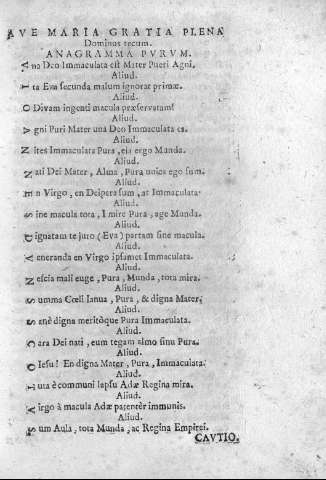 AVE MARIA GRATIA PLENA
Dominus tecum.
ANAGRAMMA PVRVM.
Vna Deo Immaculata est Mater Pueri Agni.
Aliud.
Ita Eva secunda malum ignorat primæ.
Aliud.
O Divam ingenti macula præservatam!
Aliud.
Agni Puri Mater una Deo Immaculata es.
Aliud.
Nites Immaculata Pura, eia ergo Munda.
Aliud.
Nati Dei Mater, Alma, Pura unice ego sum.
Aliud.
En Virgo, en Deipera sum, at Immaculata.
Aliud.
Sine macula tota, I mire Pura, age Munda.
Aliud.
te juro (Eva) partam sine macula.
Aliud.
Veneranda en Virgo ipsamet Immaculata.
Aliud.
Nescia mali euge, Pura, Munda, tota mira.
Aliud.
Summa Cœli Ianua, Pura, & digna Mater.
Aliud.
Sanè digna meritòque Pura Immaculata.
Aliud.
Cara Dei nati, eum tegam almo sinu Pura.
Aliud.
O Iesu! En digna Mater, Pura, Immaculata.
Aliud.
Tuta è communi lapsu Adæ Regina mira.
Aliud.
Virgo à macula Adæ patenter immunis.
Aliud.
Sum Aula, tota Munda, ac Regina Empirei.
CAVTIO.